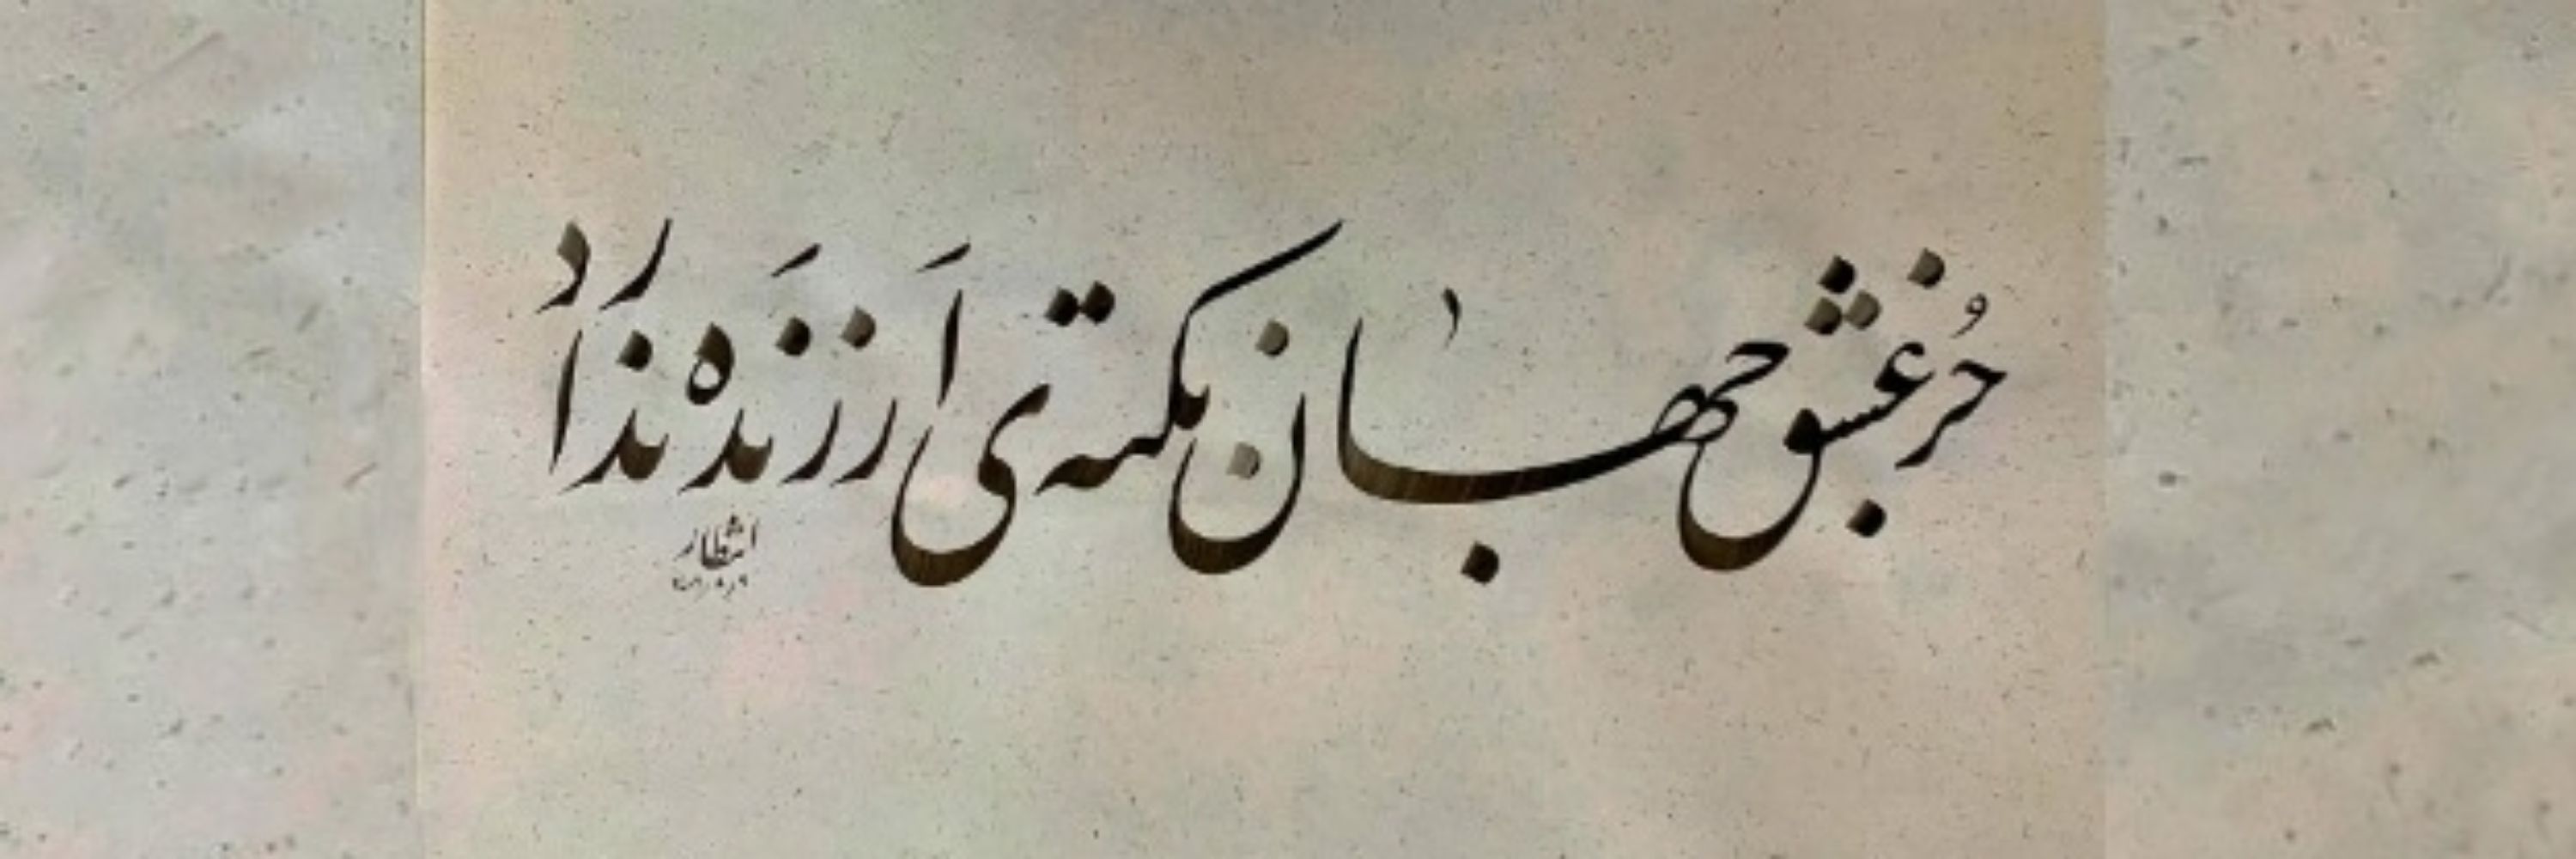 جُز عشق جهان نکته ی اَرزَنده ندارد
انتظار